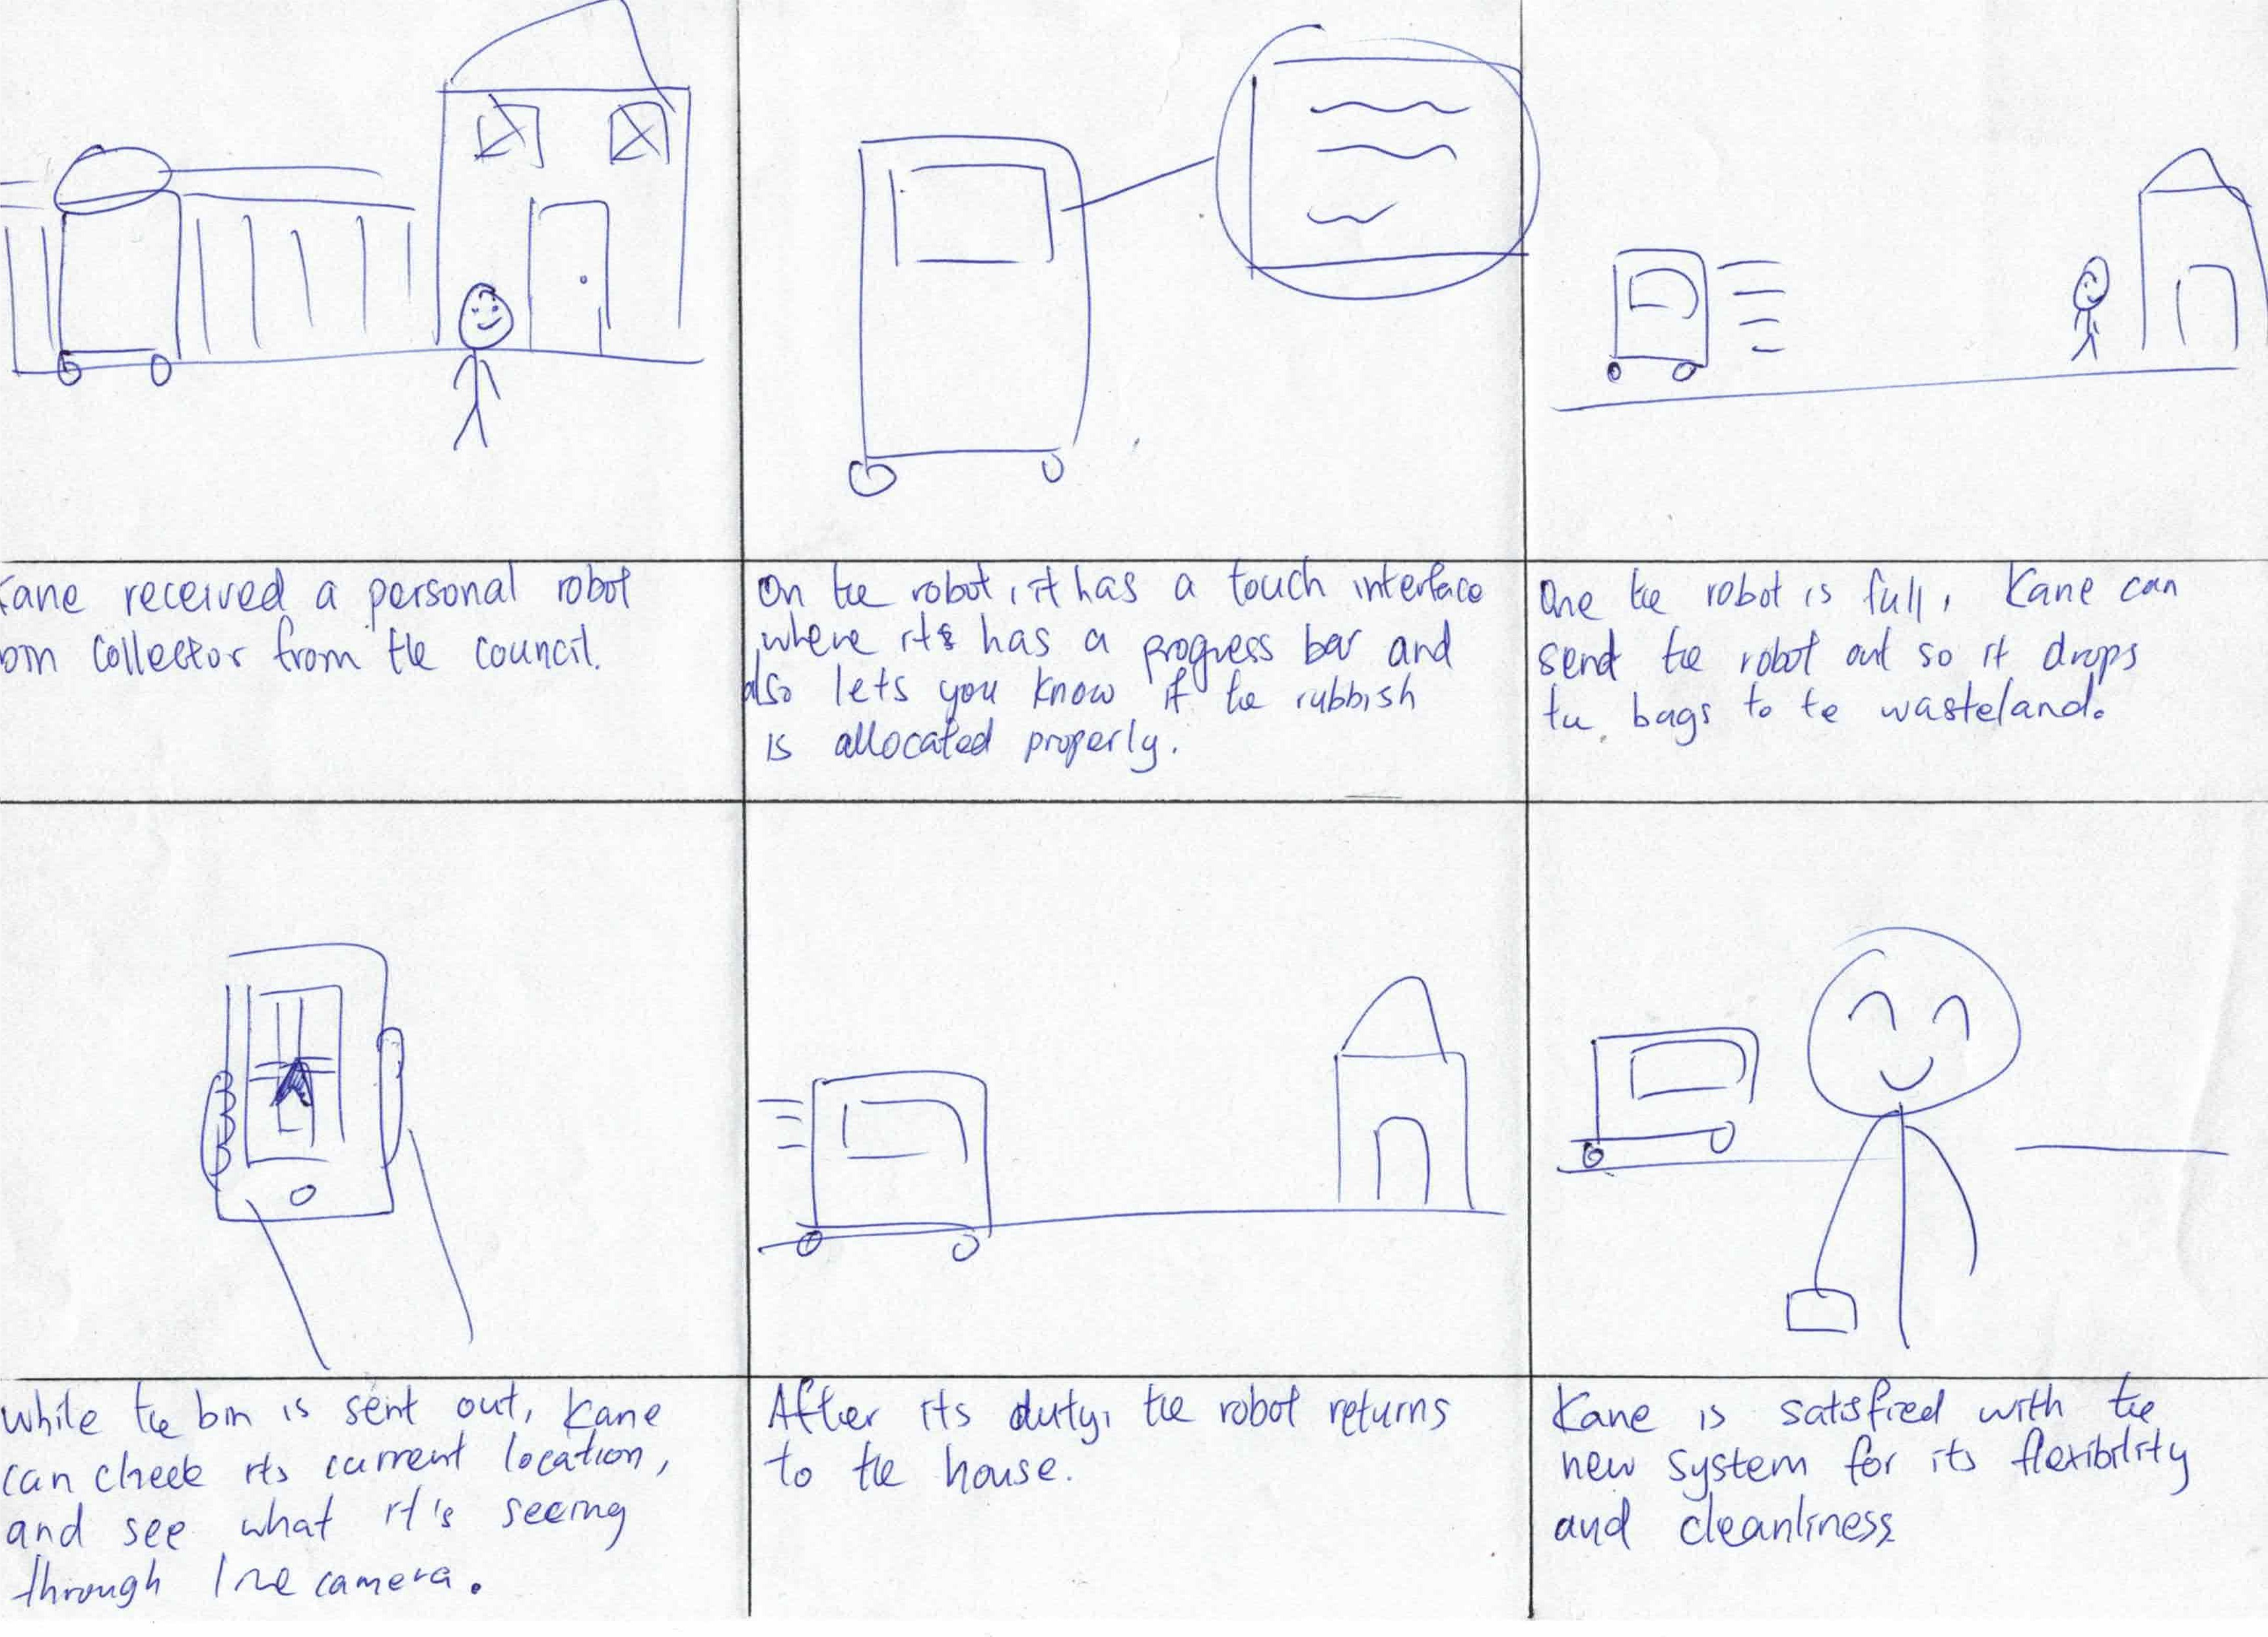 Kane received a personal robot
bin collector from the council.
On the robot, it has a touch interface
where its has a progress bar and
also lets you know if the rubbish
is allocated properly.
One the robot is full, Kane can
send the robot out so it drops
the bags to te wasteland.
while the bin is sent out, Kane
can check its current location,
and see what it's seeing
through live camera.
After its duty, the robot returns
to the house.
Kane is satisfied with the
new system for its flexibility
and cleanliness